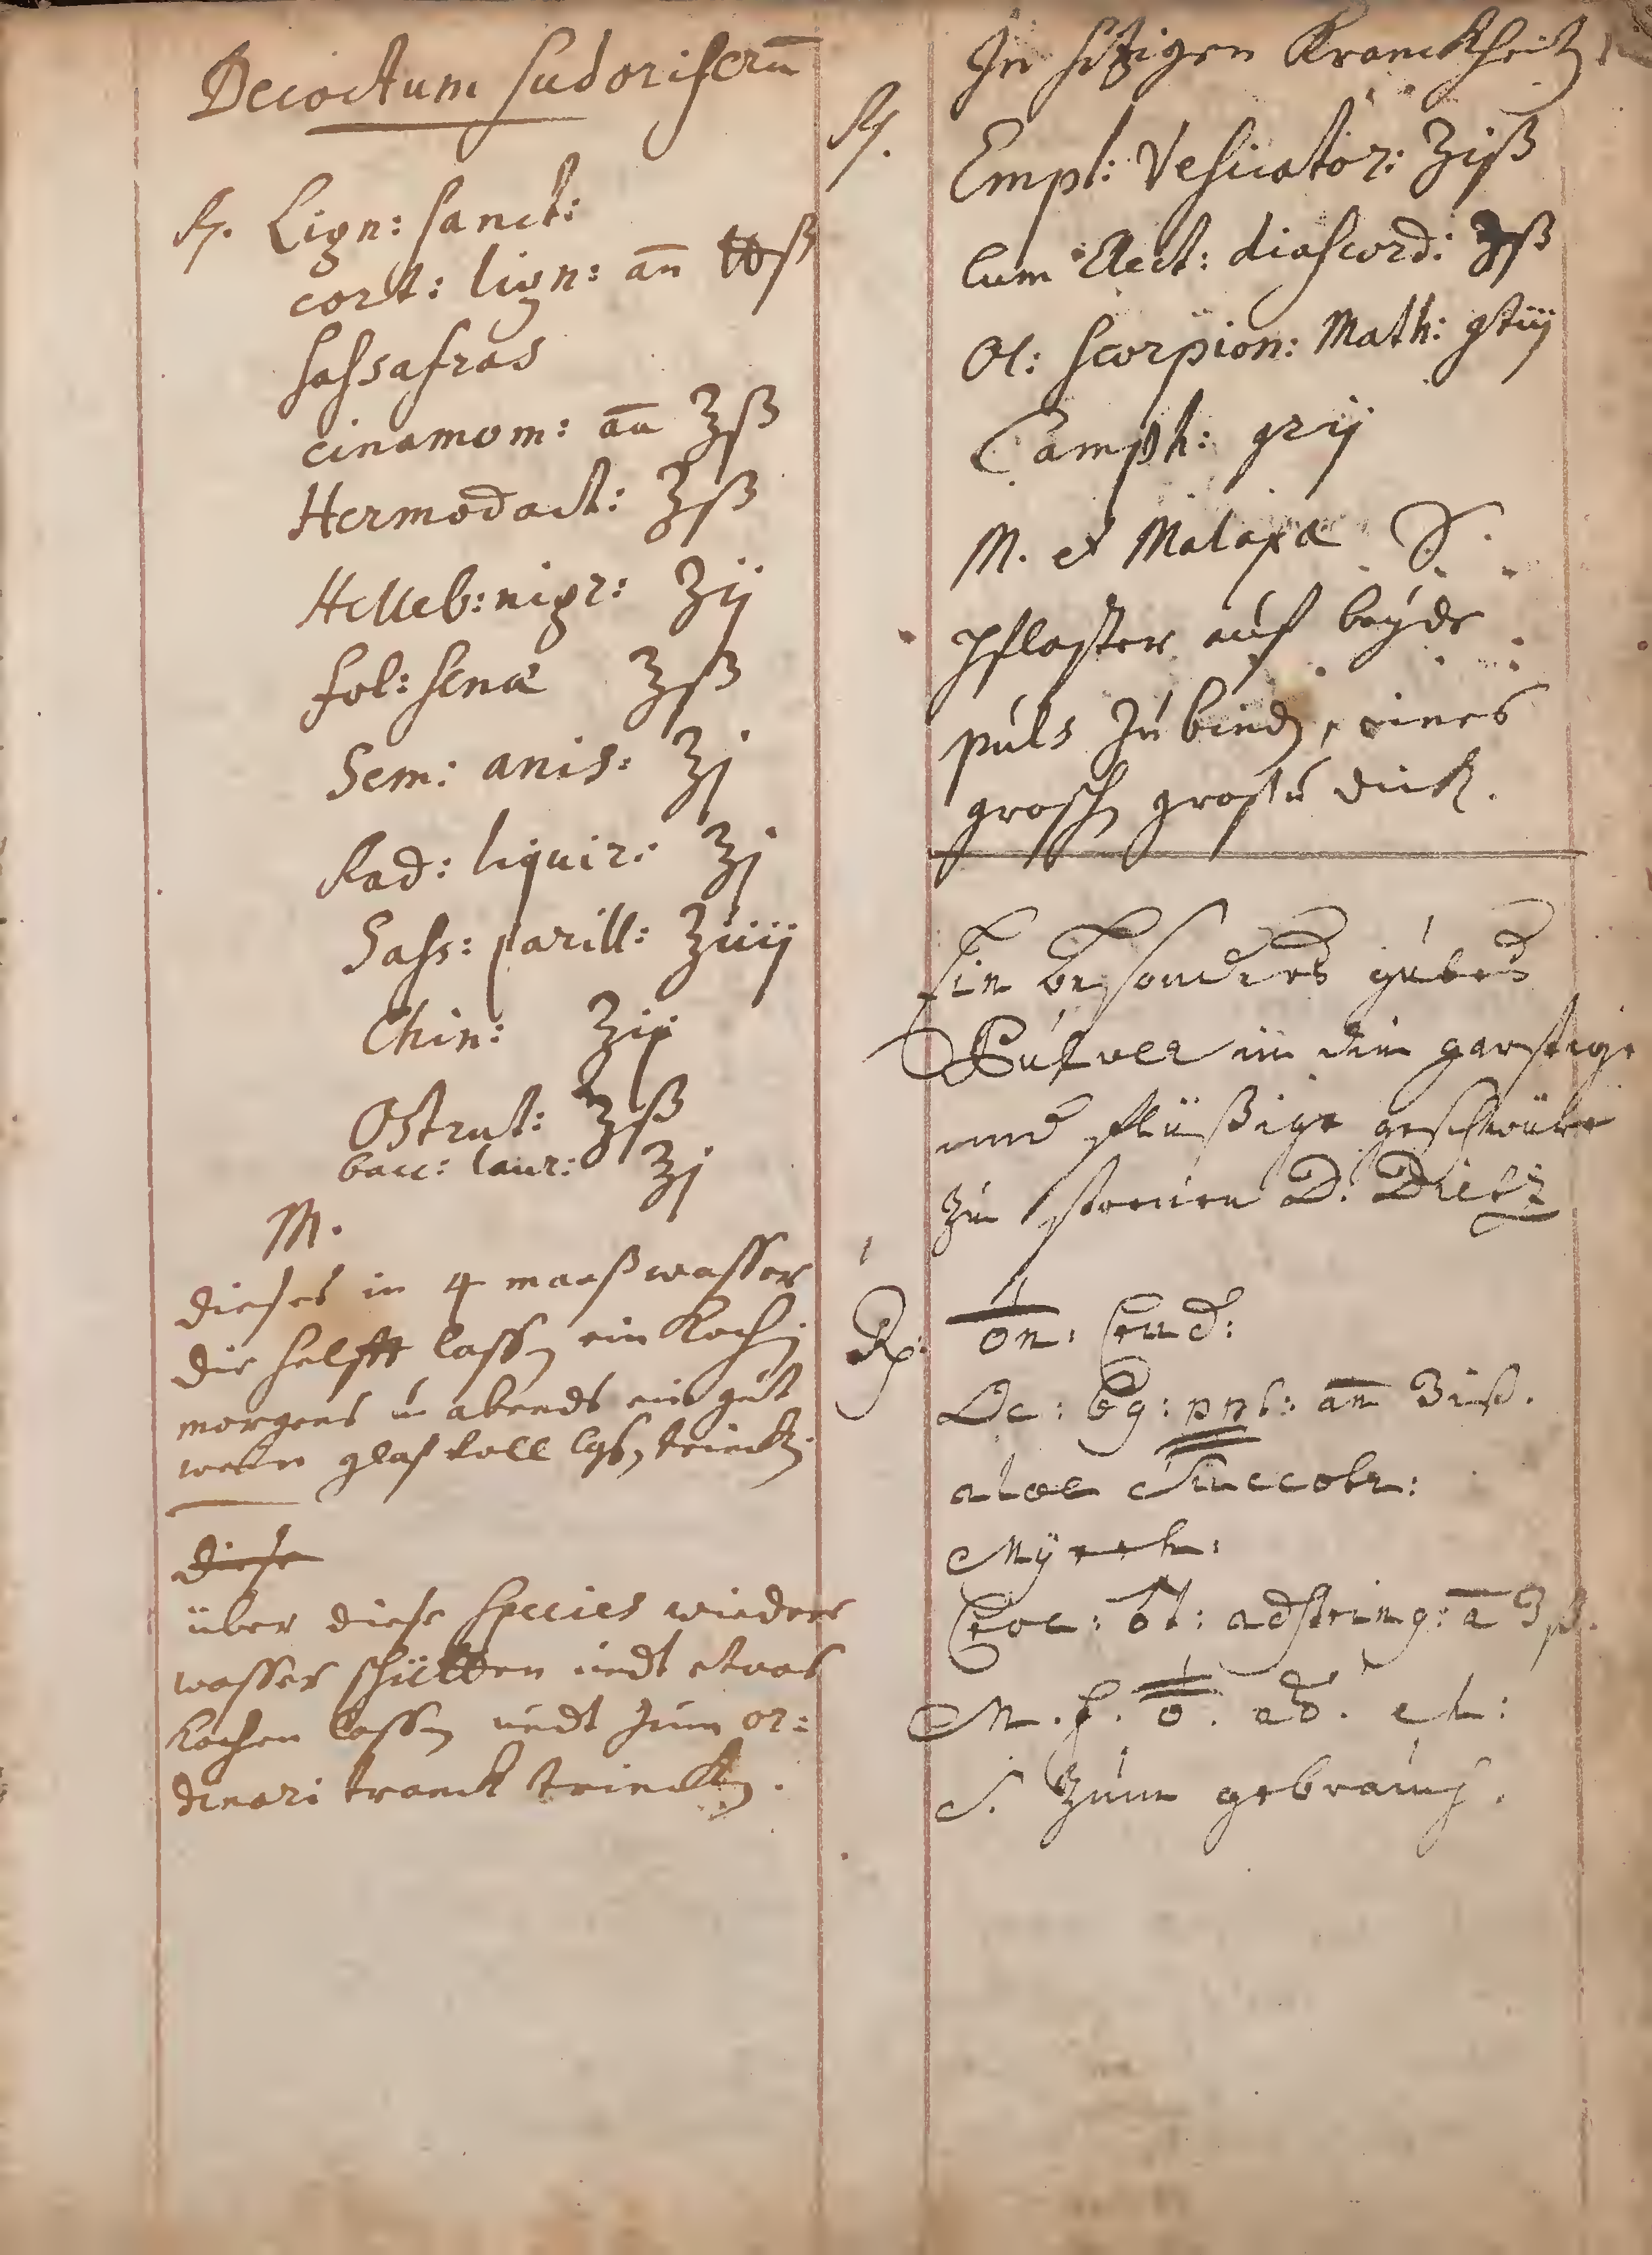 Decoctum sudoriferū
℞. Lign: sanct:
cort: lign: an̄ ℔ß
sassafras
cinamom: an̄ ℥ß
Hermodact: ℥ß
Helleb: nigr: ʒij
fol: senæ ℥ß
Sem: anis: ʒj
Rad: liquir: ℥j
Sass: parill: ℥iiij
Chin:
Ostrut: ℥ß
bacc: laur: ʒj
M.
dieses in 4 maaß wasser
die helfft lassen ein Kochen
morgens u abends ein gut
wein glaß voll trincken
diese
über diese species wieder
wasser schütten undt etwas
kochen lassen undt zum or:
dinari tranck trincken.
In hitzigen Kranckheiten
℞.
Empl: Vesicator: ℥iß
cum Elect: diascord: ʒß
Ol: scorpion: Math: gtiij
Camph: grij
M. et Malaxa S.
pflaster auf beyde
puls zu binden, eines
groschen groß u dick.
Ein besonders gutes
Pulver in die garstige
und flüßige geschwüre
zu streuen D. Dietz
Rp: crud:
pps: an̄ ʒiß.
aloe succotr:
Myrrh:
Croc: adstring: a̅ ʒß.
M. f. ad.
S. zum gebrauch.